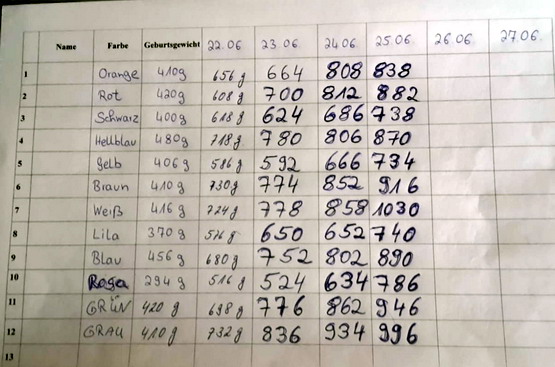 Name Farbe Geburtsgewicht 22.06 23.06 24.06 25.06. 26.06. 27.06.
1 Orange 410g 656g 664 808 838
2 Rot 420g 608g 700 812 882
3 Schwarz 400g 618g 624 686 738
4 Hellblau 480g 718g 780 806 870
5 gelb 406g 586g 592 666 734
6 Braun 410g 730g 774 852 916
7 Weiß 416g 724g 778 858 1030
8 Lila 370g 526g 650 652 740
9 Blau 456g 680g 752 802 890
10 Rosa 294g 516g 524 634 786
11 GRÜN 420g 698g 776 862 946
12 GRAU 410g 732g 836 934 996
13